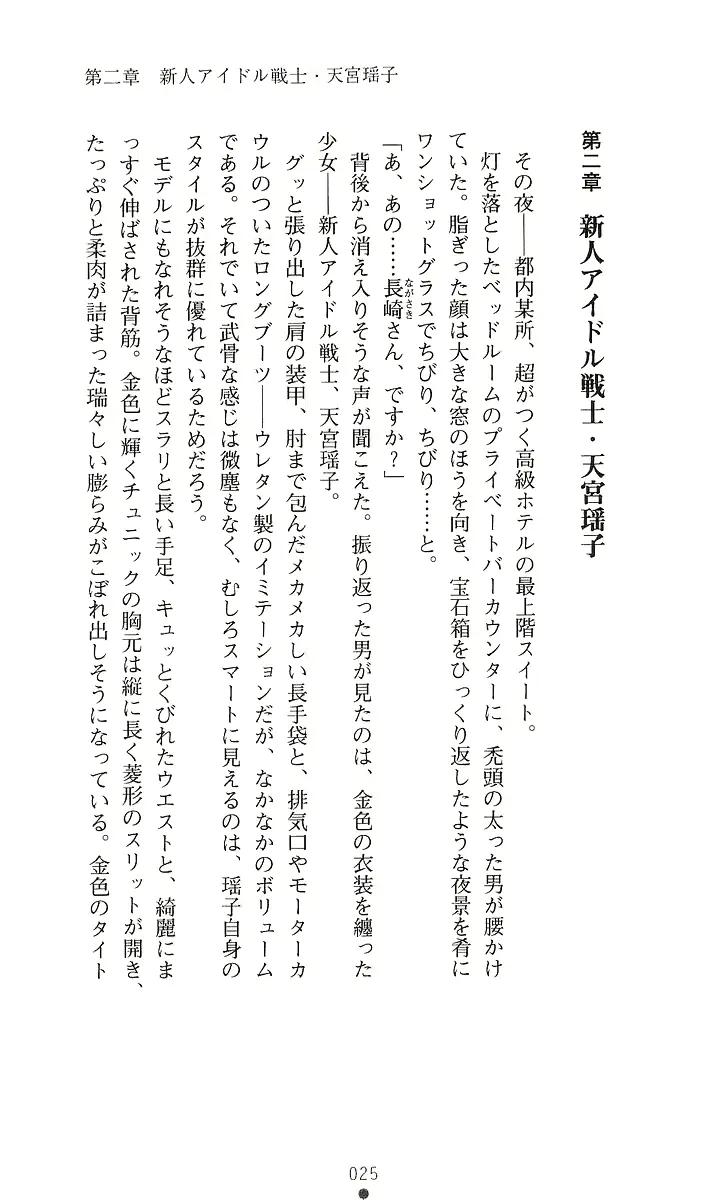 第二章　新人アイドル戦士・天宮瑶子
第二章　新人アイドル戦士・天宮瑶子
その夜――都内某所、超がつく高級ホテルの最上階スイート。
灯を落としたベッドルームのプライベートバーカウンターに、禿頭の太った男が腰かけ
ていた。脂ぎった顔は大きな窓のほうを向き、宝石箱をひっくり返したような夜景を肴に
ワンショットグラスでちびり、ちびり……と。
「あ、あの……長崎さん、ですか？」
ながさき
背後から消え入りそうな声が聞こえた。振り返った男が見たのは、金色の衣装を纏った
少女――新人アイドル戦士、天宮瑶子。
グッと張り出した肩の装甲、肘まで包んだメカメカしい長手袋と、排気口やモーターカ
ウルのついたロングブーツ――ウレタン製のイミテーションだが、なかなかのボリューム
である。それでいて武骨な感じは微塵もなく、むしろスマートに見えるのは、瑶子自身の
スタイルが抜群に優れているためだろう。
モデルにもなれそうなほどスラリと長い手足、キュッとくびれたウエストと、綺麗にま
っすぐ伸ばされた背筋。金色に輝くチュニックの胸元は縦に長く菱形のスリットが開き、
たっぷりと柔肉が詰まった瑞々しい膨らみがこぼれ出しそうになっている。金色のタイト
025